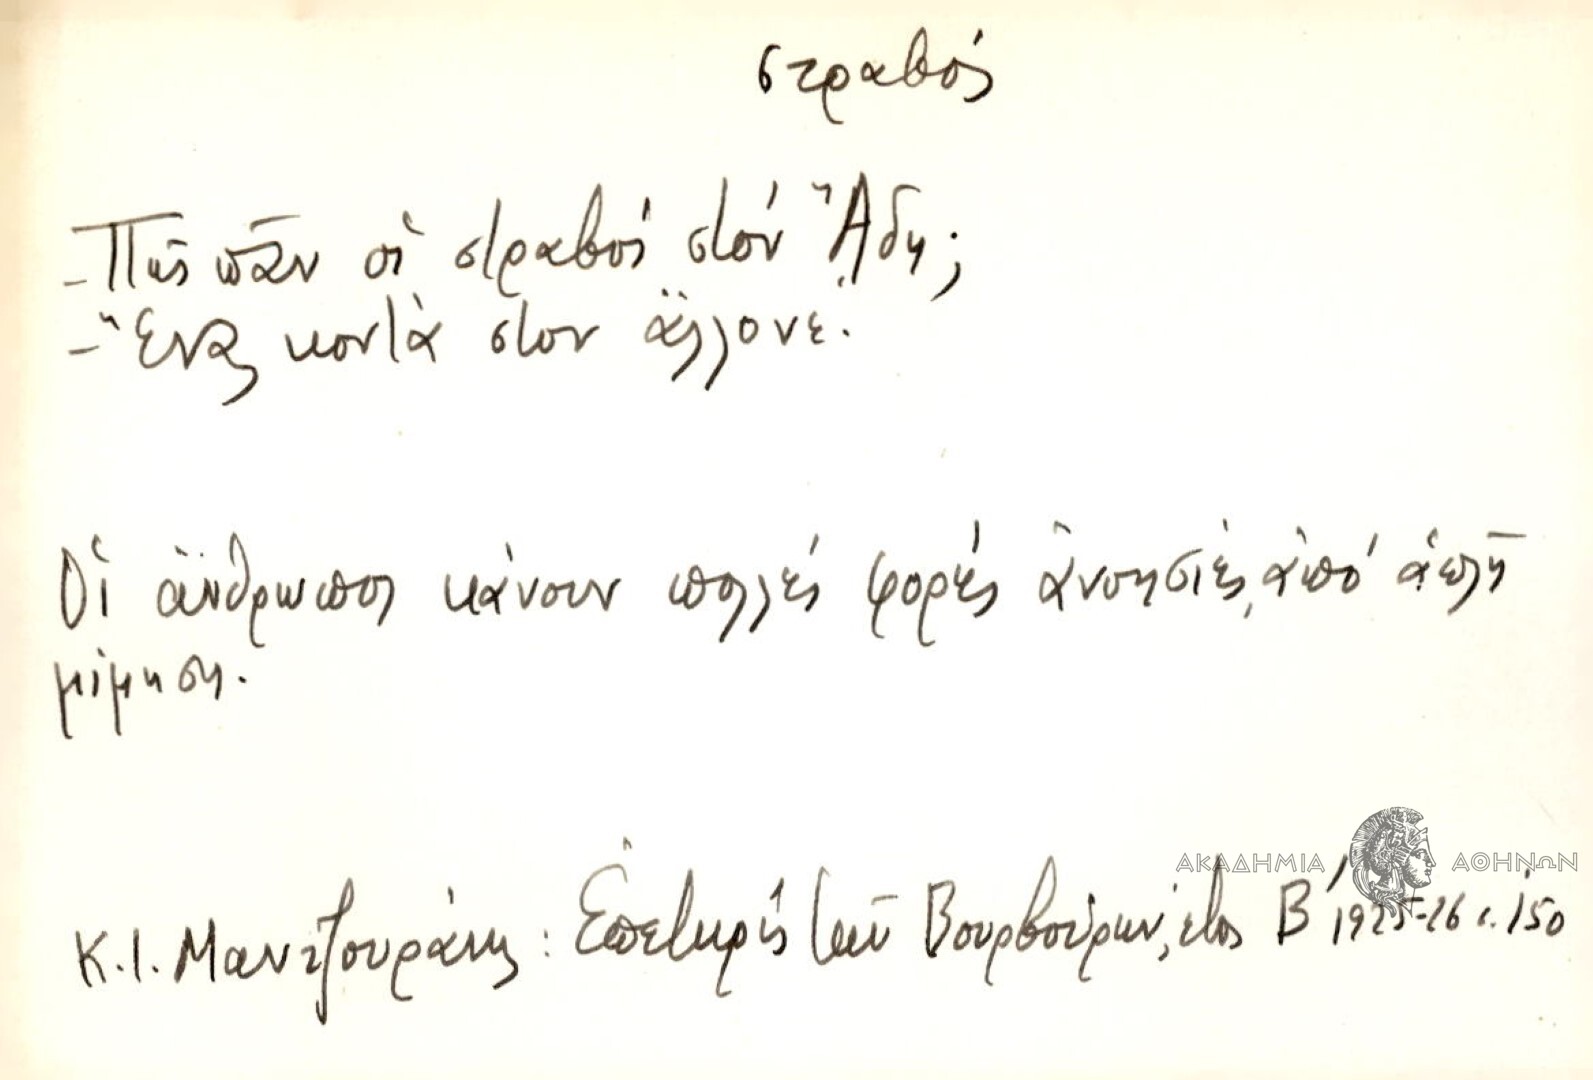 στραβός
-Πῶς πᾶν οἱ στραβοί στόν Ἅδη;
-Ἕνας κοντὰ στον ἄλλονε.
Οἱ ἄνθρωποι κάνουν πολλές φορές ἀνοησίες, ἀπό ἁπλῆ
μίμηση.
ΑΚΑΔΗΜΙΑ ΑΘΗΝΩΝ
Κ.Ι. Μαντζουράνης: Ἐπετηρίς τῶν Βουρβούρων, ἔτος Β΄ 1925-26 σ. 150